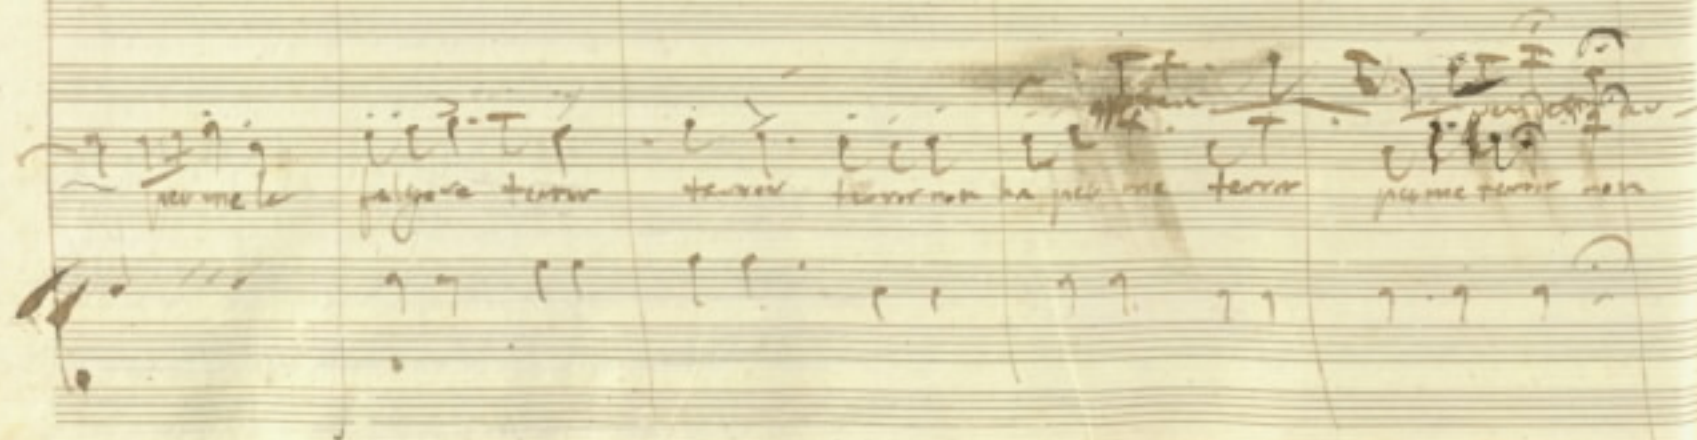 per me la folgore terror terror terror non ha per me terror per me terror non